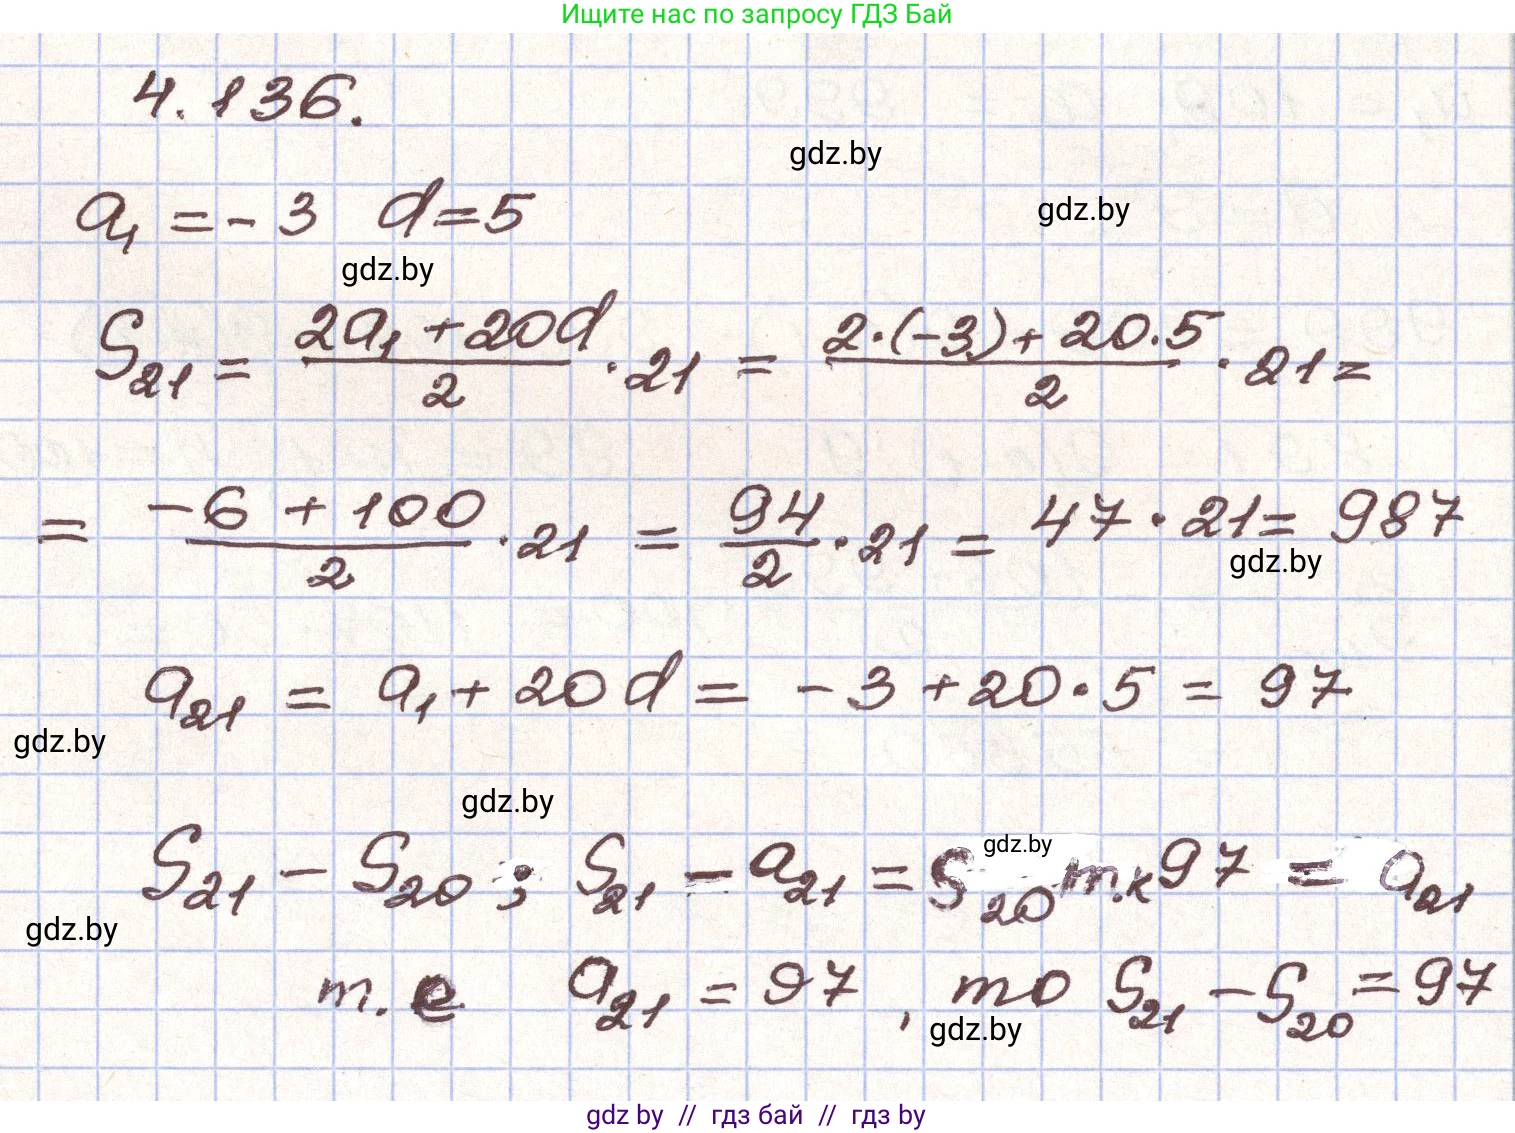 Ищите нас по запросу ГДЗ Бай
4.136.
gdz.by
a₁ = -3 d = 5
gdz.by
gdz.by
S₂₁ = (2a₁ + 20d)/2 · 21 = (2·(-3) + 20·5)/2 · 21 =
= (-6 + 100)/2 · 21 = 94/2 · 21 = 47 · 21 = 987
gdz.by
a₂₁ = a₁ + 20d = -3 + 20·5 = 97
gdz.by
gdz.by
S₂₁ - S₂₀ ; S₂₁ - a₂₁ = S₂₀ т.к 97 = a₂₁
gdz.by
gdz.by
т.е a₂₁ = 97, то S₂₁ - S₂₀ = 97
gdz.by
gdz by // гдз бай // гдз by